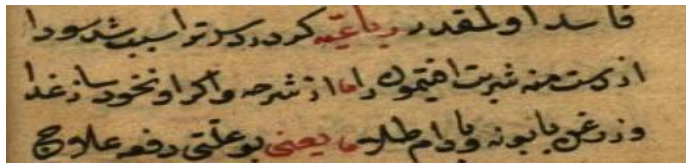 فاسد اولمقدر رباعیه کر در سر ترا سبب شد سودا
از دست منه شربت افتیمون را اما از شرحه واکر او نخود ساز غدا
وز روغن بابونه و بادام طلا یعنی بو علتی دفعه علاج